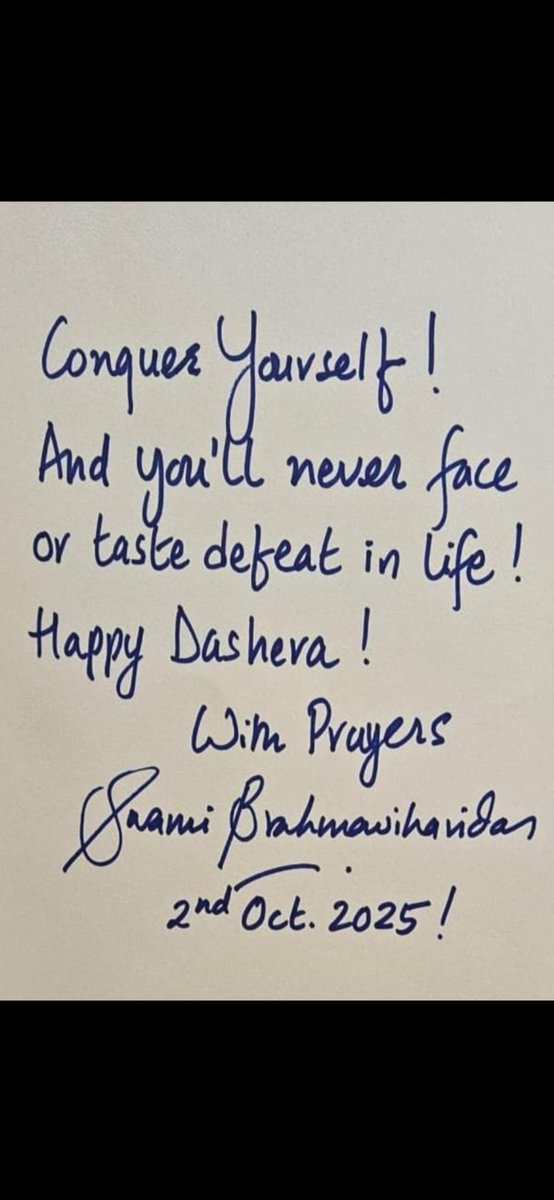 Conquer Yourself!
And you'll never face
or taste defeat in life!
Happy Dashera!
With Prayers
Swami Brahmaviharidas
2nd Oct. 2025!